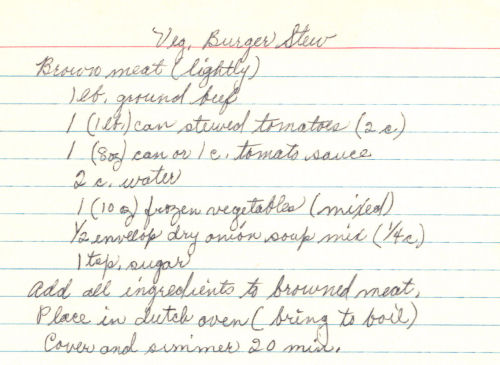 Veg. Burger Stew
Brown meat (lightly)
1 lb. ground beef
1 (1 lb.) can stewed tomatoes (2 c.)
1 (8oz) can or 1 c. tomato sauce
2 c. water
1 (10 oz) frozen vegetables (mixed)
1/2 envelop dry onion soup mix (1/4 c.)
1 tsp. sugar
Add all ingredients to browned meat.
Place in dutch oven (bring to boil)
Cover and simmer 20 min.